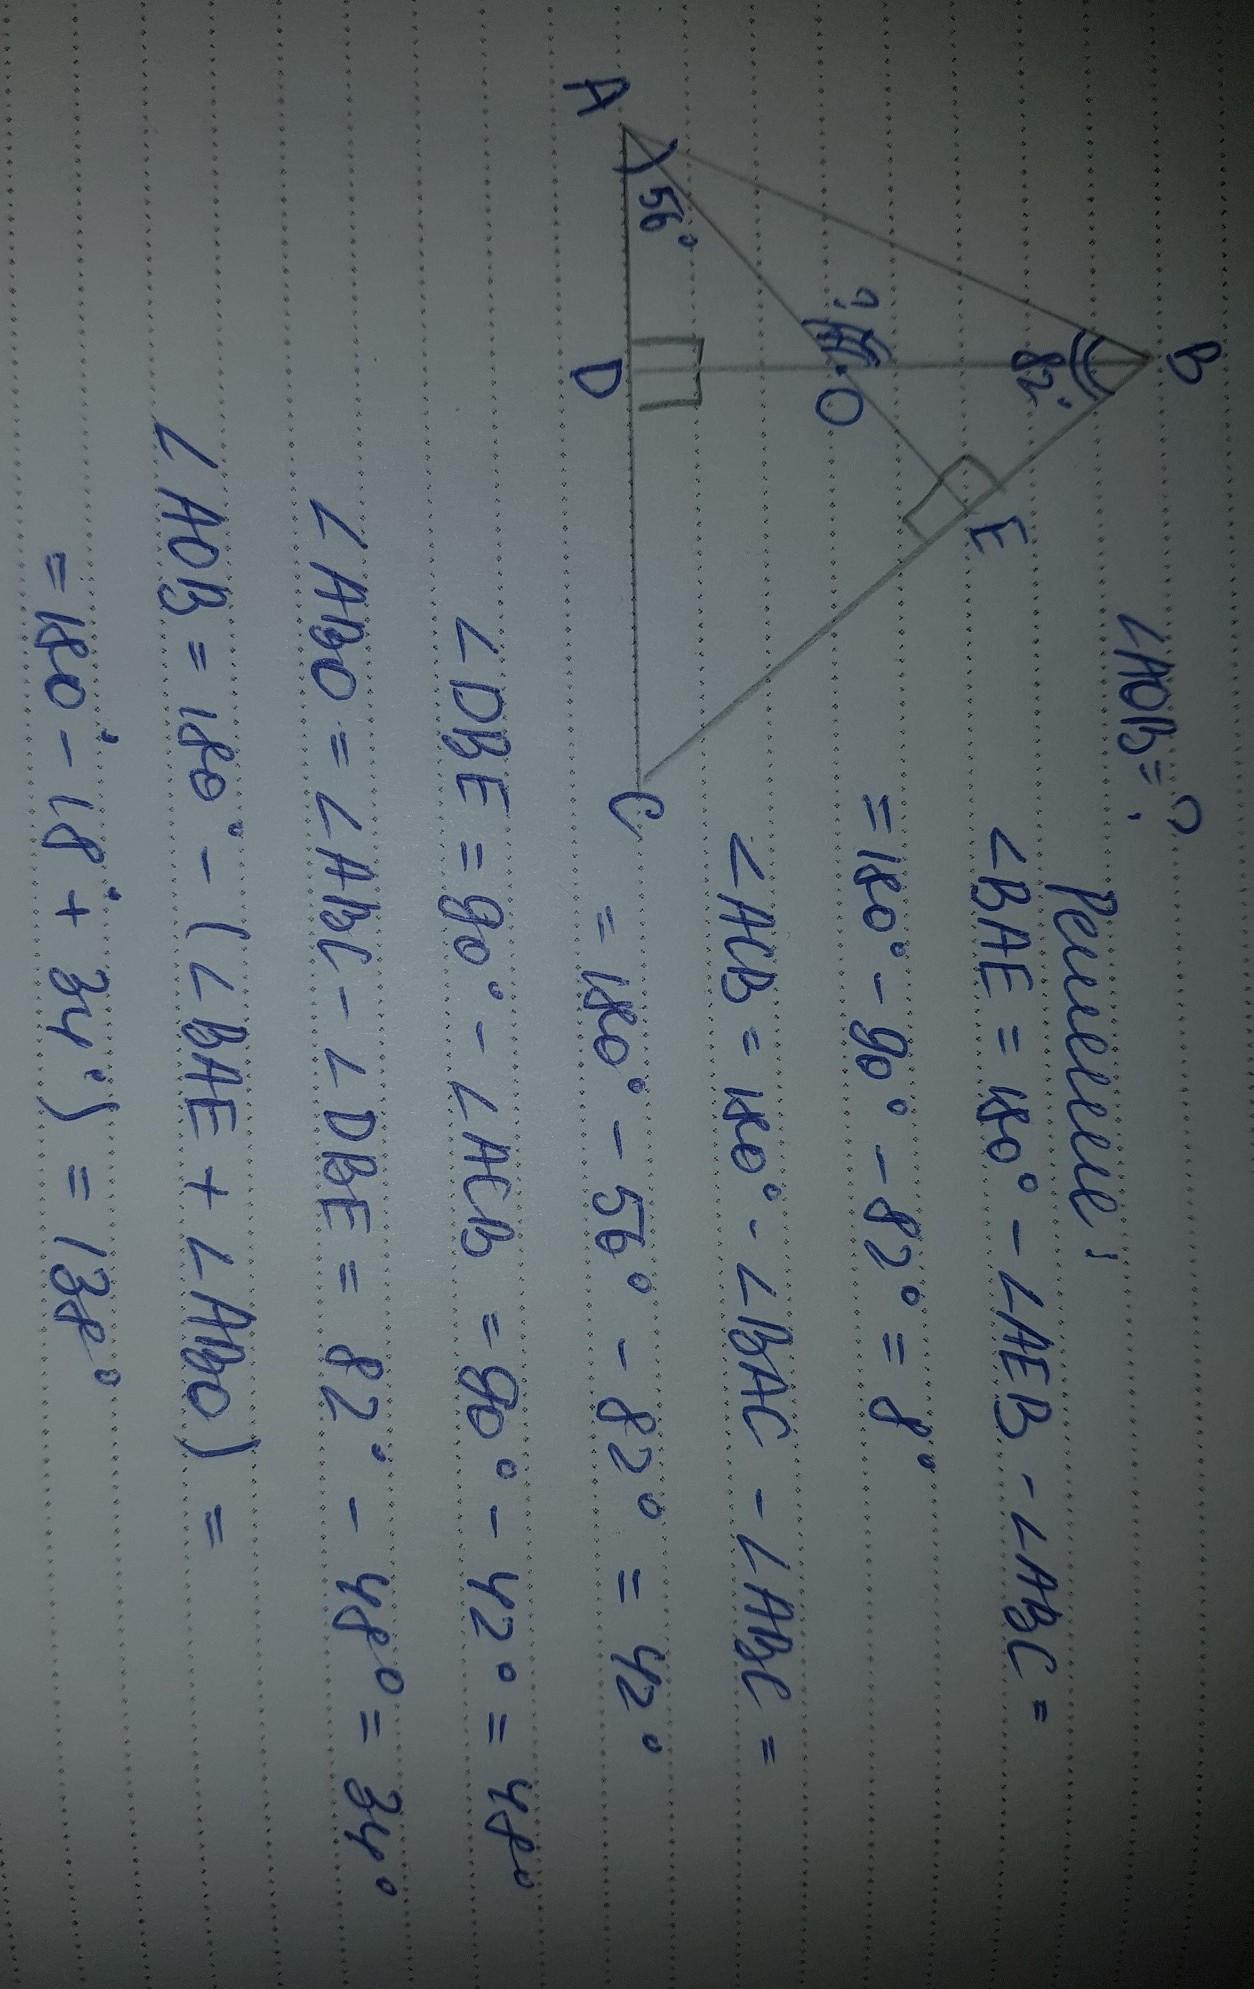 B
∠AOB = ?
82°
E
Решение:
∠BAE = 180° - ∠AEB - ∠ABC =
= 180° - 90° - 82° = 8°
?
O
∠ACB = 180° - ∠BAC - ∠ABC =
56°
A
D
C
= 180° - 56° - 82° = 42°
∠DBE = 90° - ∠ACB = 90° - 42° = 48°
∠ABO = ∠ABC - ∠DBE = 82° - 48° = 34°
∠AOB = 180° - (∠BAE + ∠ABO) =
= 180° - (8° + 34°) = 138°